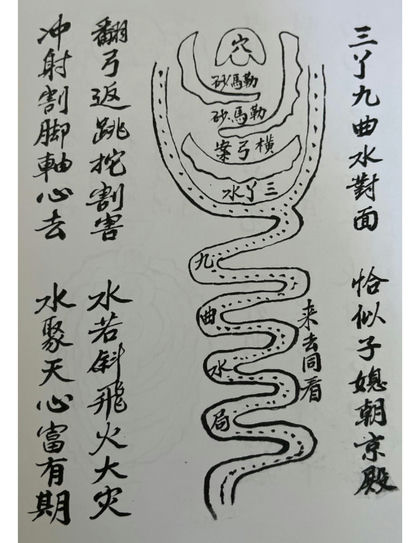 三丫九曲水對面 恰似子媳朝京殿
穴
勒馬砂
勒馬砂
橫弓案
三丫水
九曲水局
来去同看
翻弓返跳挖割害 水若斜飛火大灾
冲射割脚軸心去 水聚天心富有期